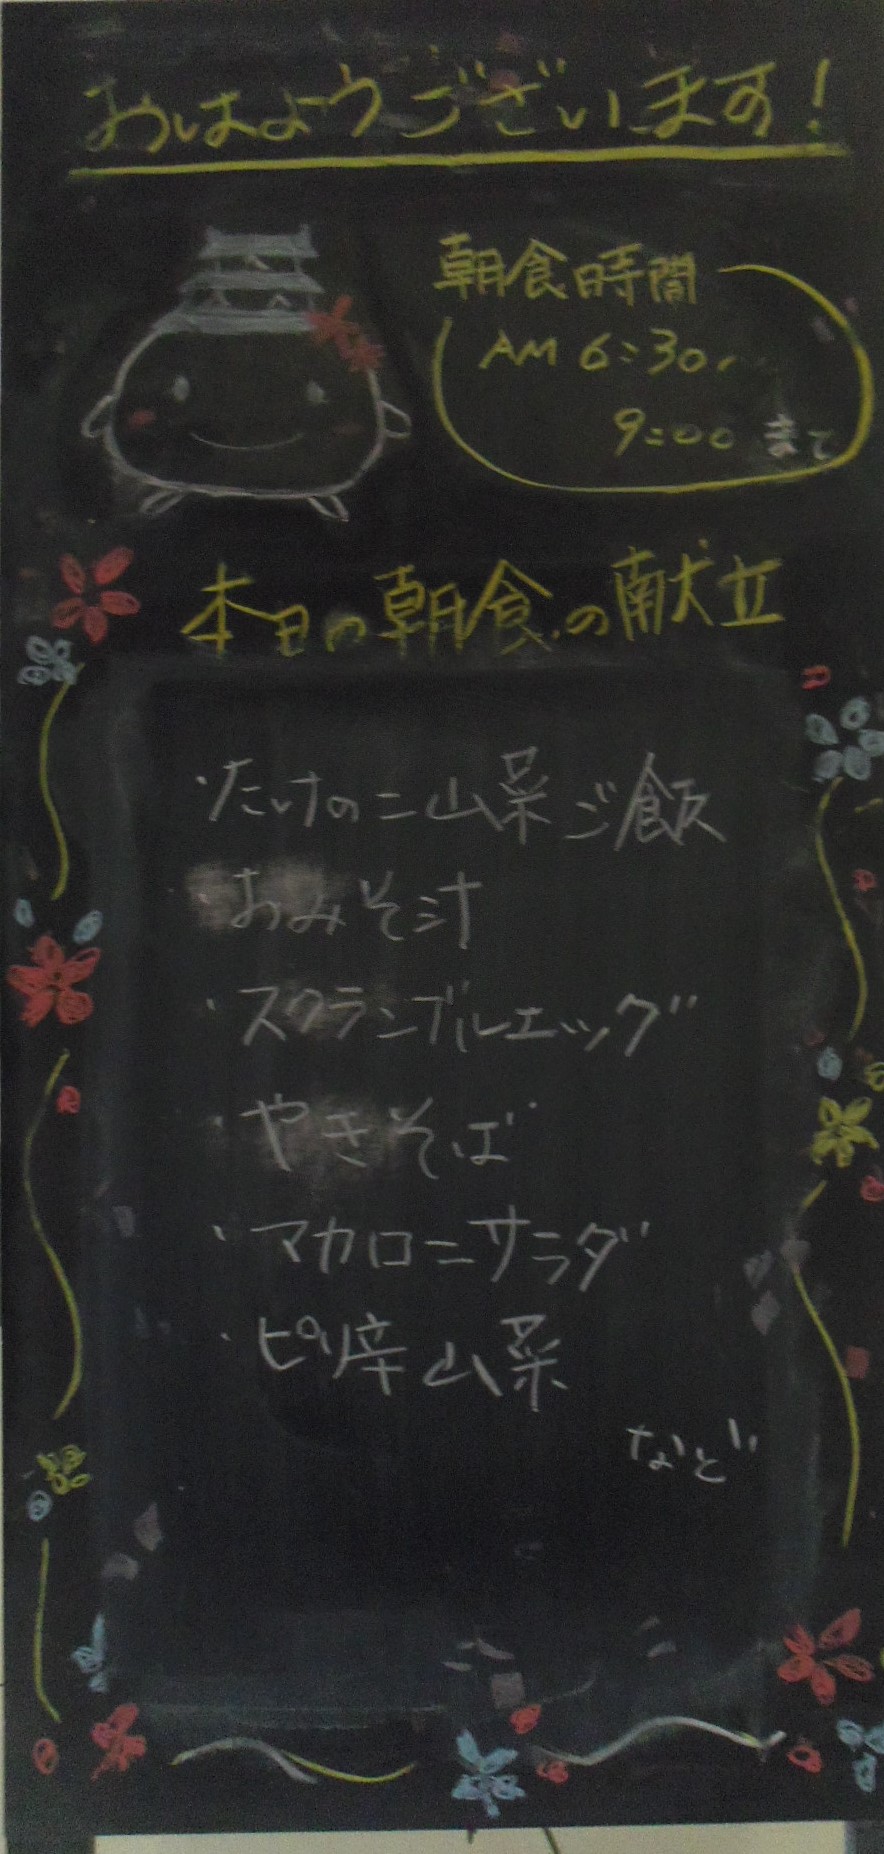 おはようございます!
朝食時間
AM 6:30〜
9:00 まで
本日の朝食の献立
・たけのこ山菜ご飯
・おみそ汁
・スクランブルエッグ
・やきそば
・マカロニサラダ
・ピリ辛山菜
など